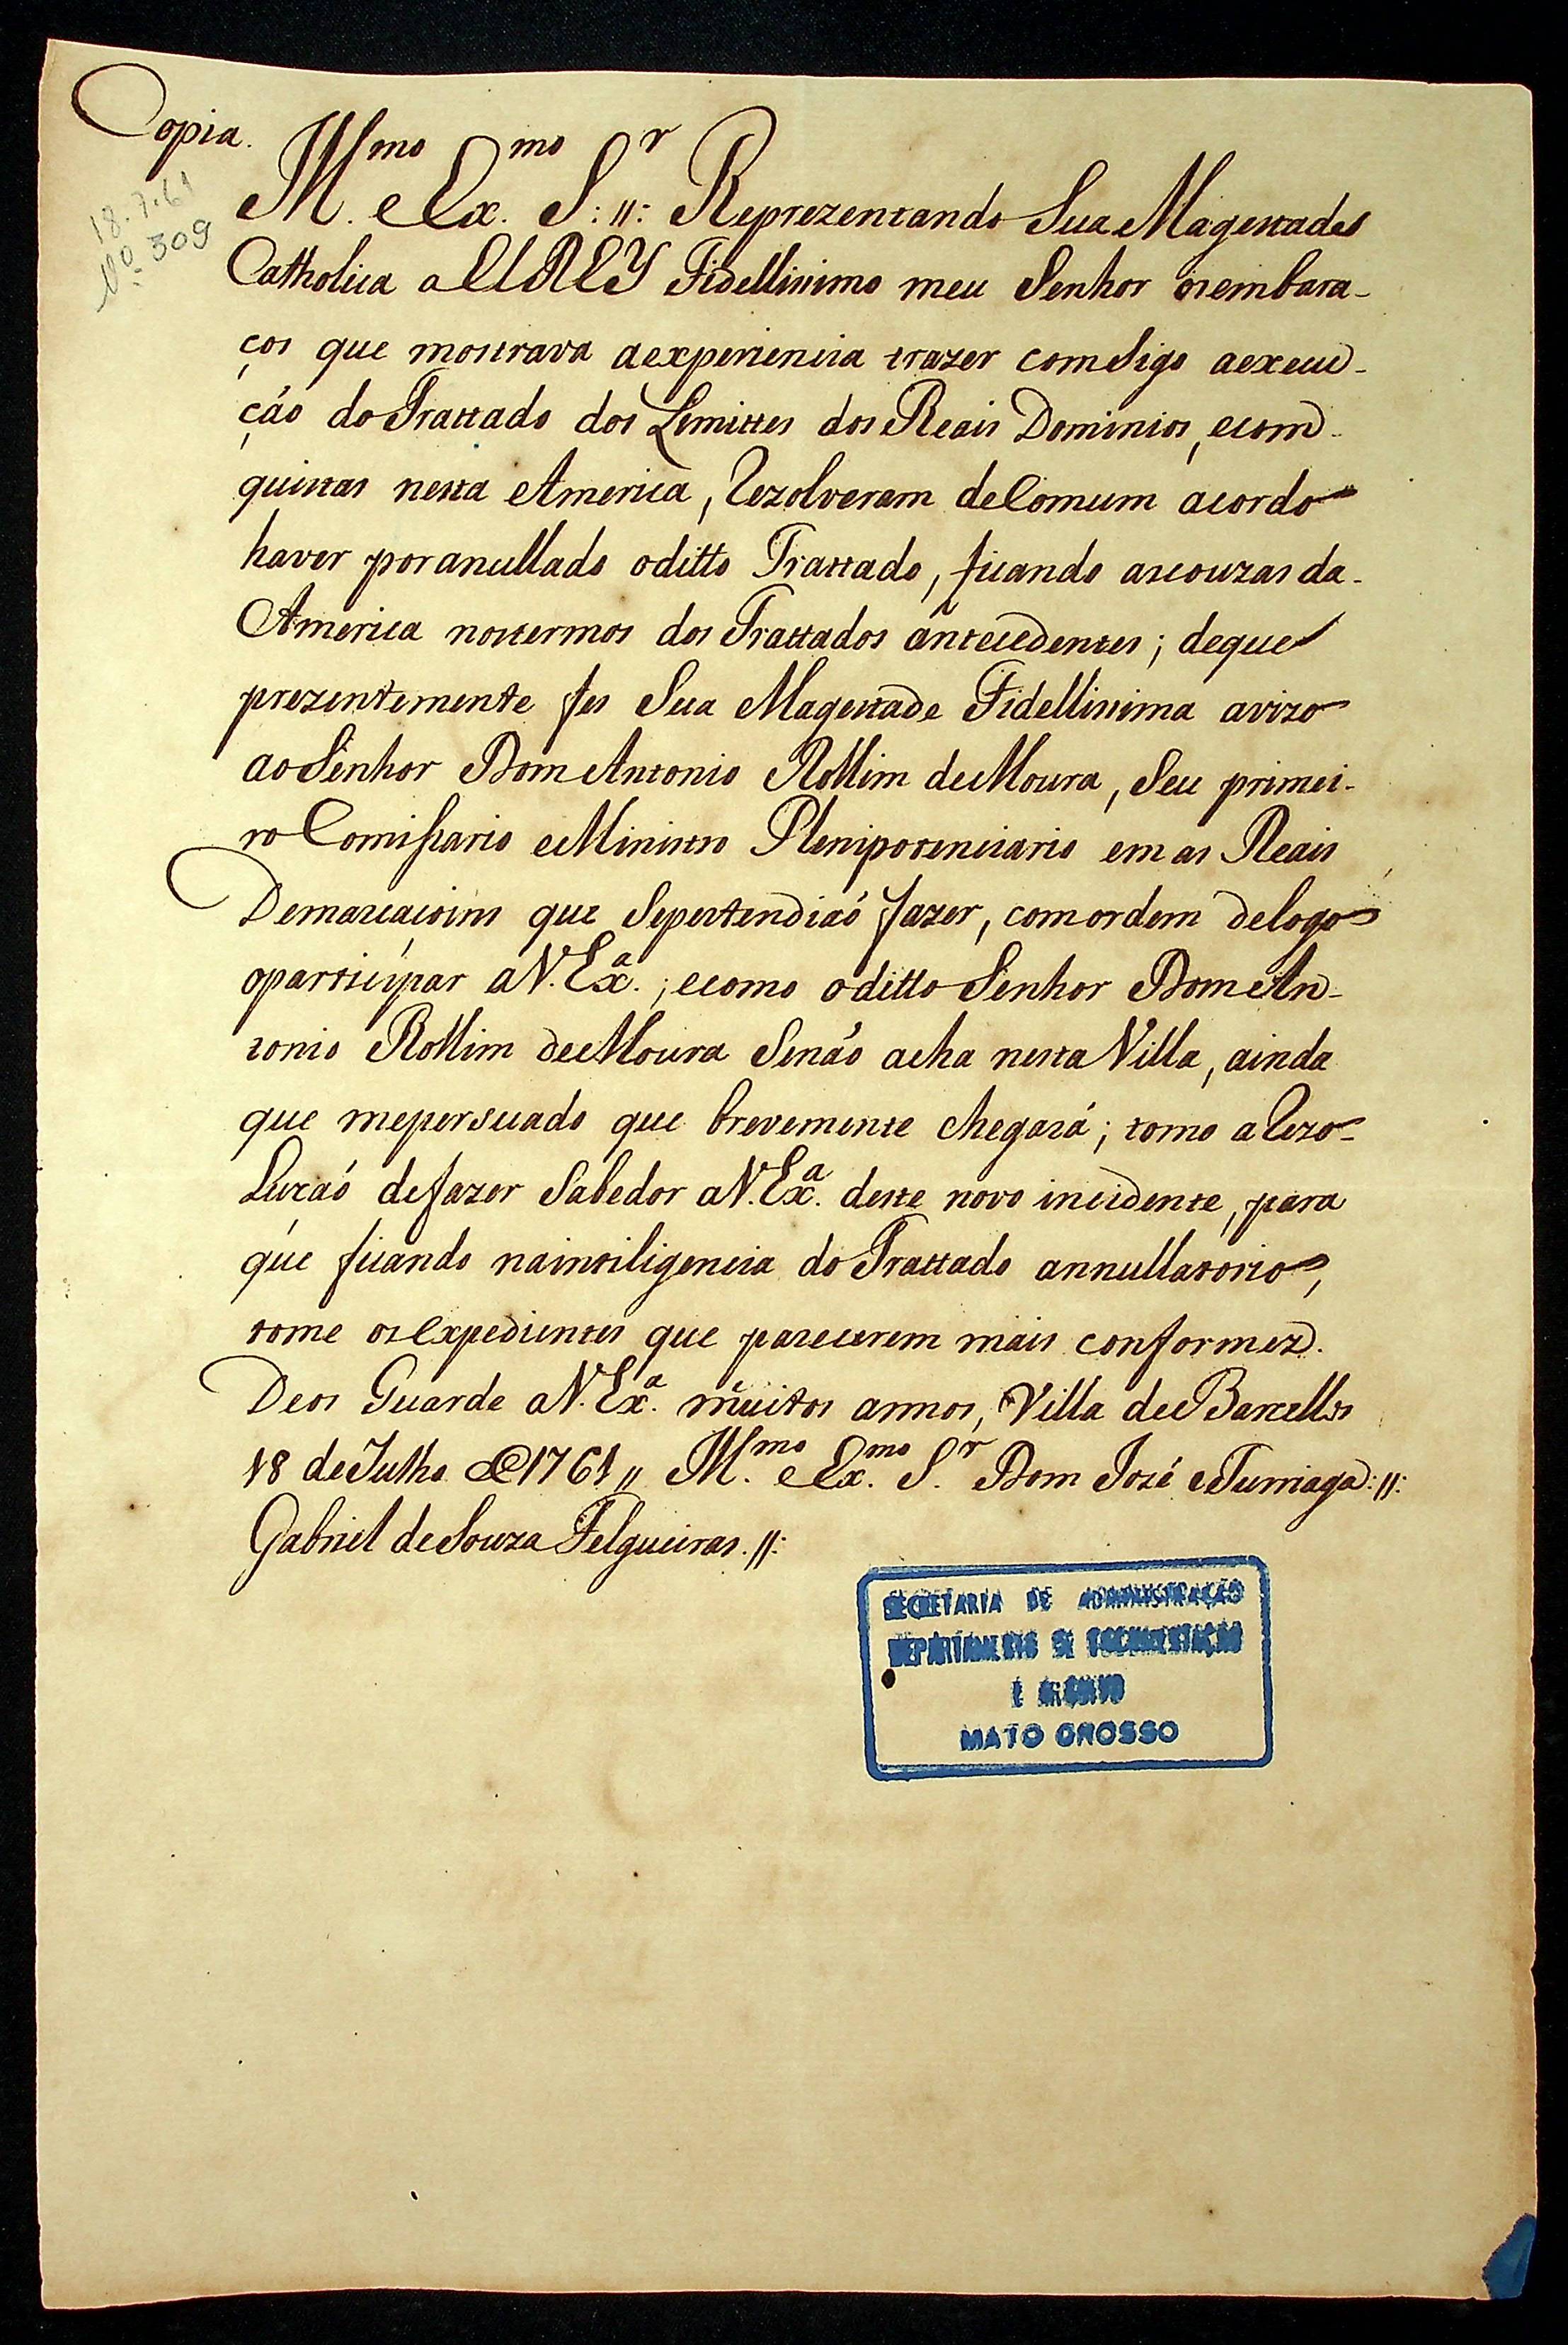 Copia.
18.7.61
Nº 309
Ill.mo e Ex.mo S.r :||: Reprezentando Sua Magestade
Catholica a ElREY Fidellissimo meu Senhor os embara-
ços que mostrava aexperiencia trazer comsigo aexecu-
ção do Trattado dos Lemittes dos Reais Dominios, econ-
quistas nesta America, rezolveram deComum acordo
haver poranullado oditto Trattado, ficando ascouzas da
America nostermos dos Trattados antecedentes; deque
prezentemente fes Sua Magestade Fidellissima avizo
aoSenhor Dom Antonio Rollim deMoura, Seu primei-
ro Comissario eMinistro Plenipotenciario em as Reais
Demarcacoins que Sepertendiaó fazer, comordem delogo
oparticipar aV. Ex.a; ecomo oditto Senhor Dom An-
tonio Rollim deMoura Senão acha nestaVilla, ainda
que mepersuado que brevemente chegará; tomo a rezo-
luçaó defazer Sabedor aV. Ex.a deste novo incidente, para
que ficando naintiligencia do Trattado annullatorio,
tome osexpedientes que parecerem mais conformes.
Deos Guarde aV. Ex.a muitos annos, Villa deBarcellos
18 deJulho de1761 ,, Ill.mo e Ex.mo S.r Dom José eTurriaga :||:
Gabriel deSouza Felgueiras. ||:
SECRETARIA DE ADMINISTRAÇÃO
DEPARTAMENTO DE DOCUMENTAÇÃO
E ARQUIVO
MATO GROSSO